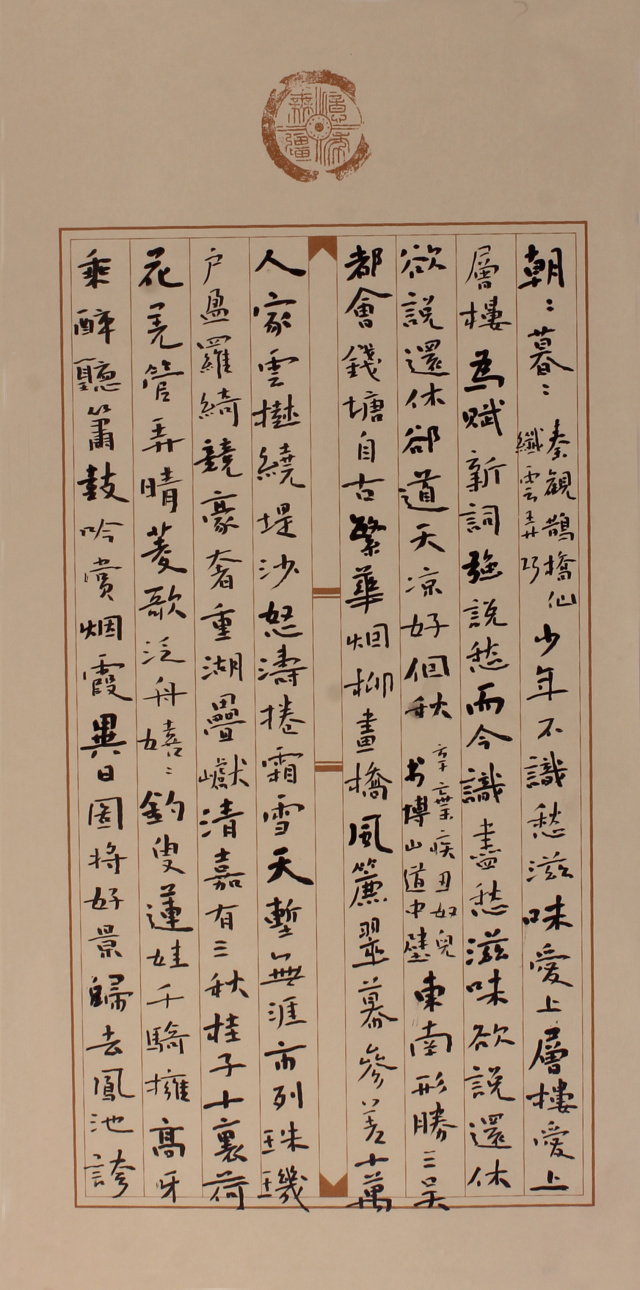 億年無疆
朝〻暮〻
秦觀鵲橋仙
纖雲弄巧
少年不識愁滋味愛上層樓愛上
層樓為賦新詞強說愁而今識盡愁滋味欲說還休
欲說還休卻道天凉好個秋
辛棄疾丑奴兒
书博山道中壁
東南形勝三吴
都會錢塘自古繁華烟柳畫橋風簾翠幕參差十萬
人家雲樹繞堤沙怒濤捲霜雪天塹無涯市列珠璣
户盈羅綺競豪奢重湖疊巘清嘉有三秋桂子十裏荷
花羌管弄晴菱歌泛舟嬉〻釣叟蓮娃千騎擁高牙
乘醉聽簫鼓吟賞烟霞異日圖將好景歸去鳳池誇